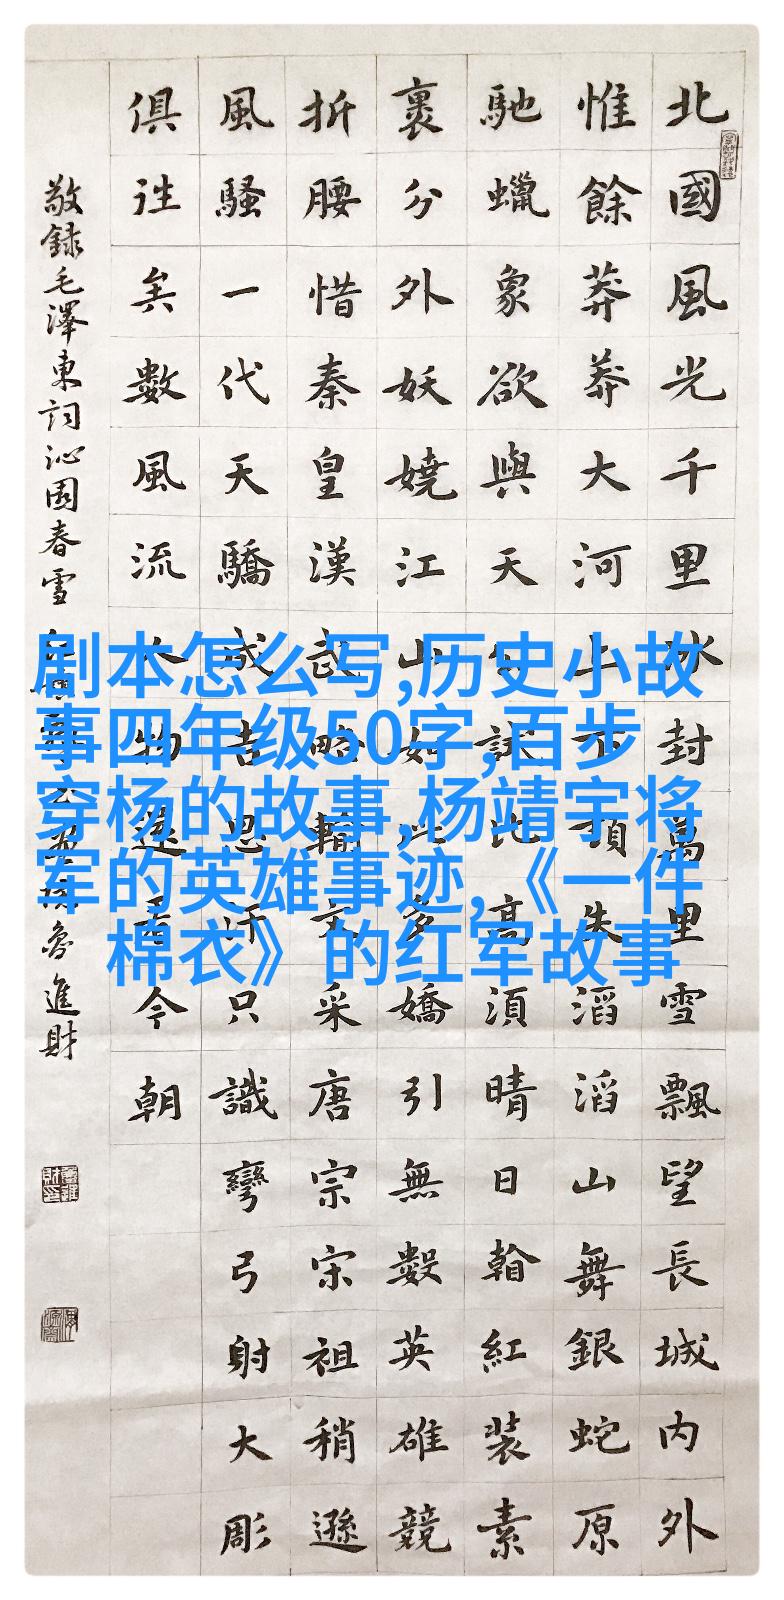 北國風光千里冰封萬里雪飄望長城内外
惟餘莽莽大河上下頓失滔滔山舞銀蛇原
馳蠟象欲與天公試比高須晴日看紅裝素
裹分外妖嬈江山如此多嬌引無數英雄競
折腰惜秦皇漢武略輸文采唐宗宋祖稍遜
風騷一代天驕成吉思汗只識彎弓射大彫
俱往矣數風流人物還看今朝
敬録毛澤東詞沁園春雪 魯進財
剧本怎么写,历史小故
事四年级50字,百步
穿杨的故事,杨靖宇将
军的英雄事迹,《一件
棉衣》的红军故事